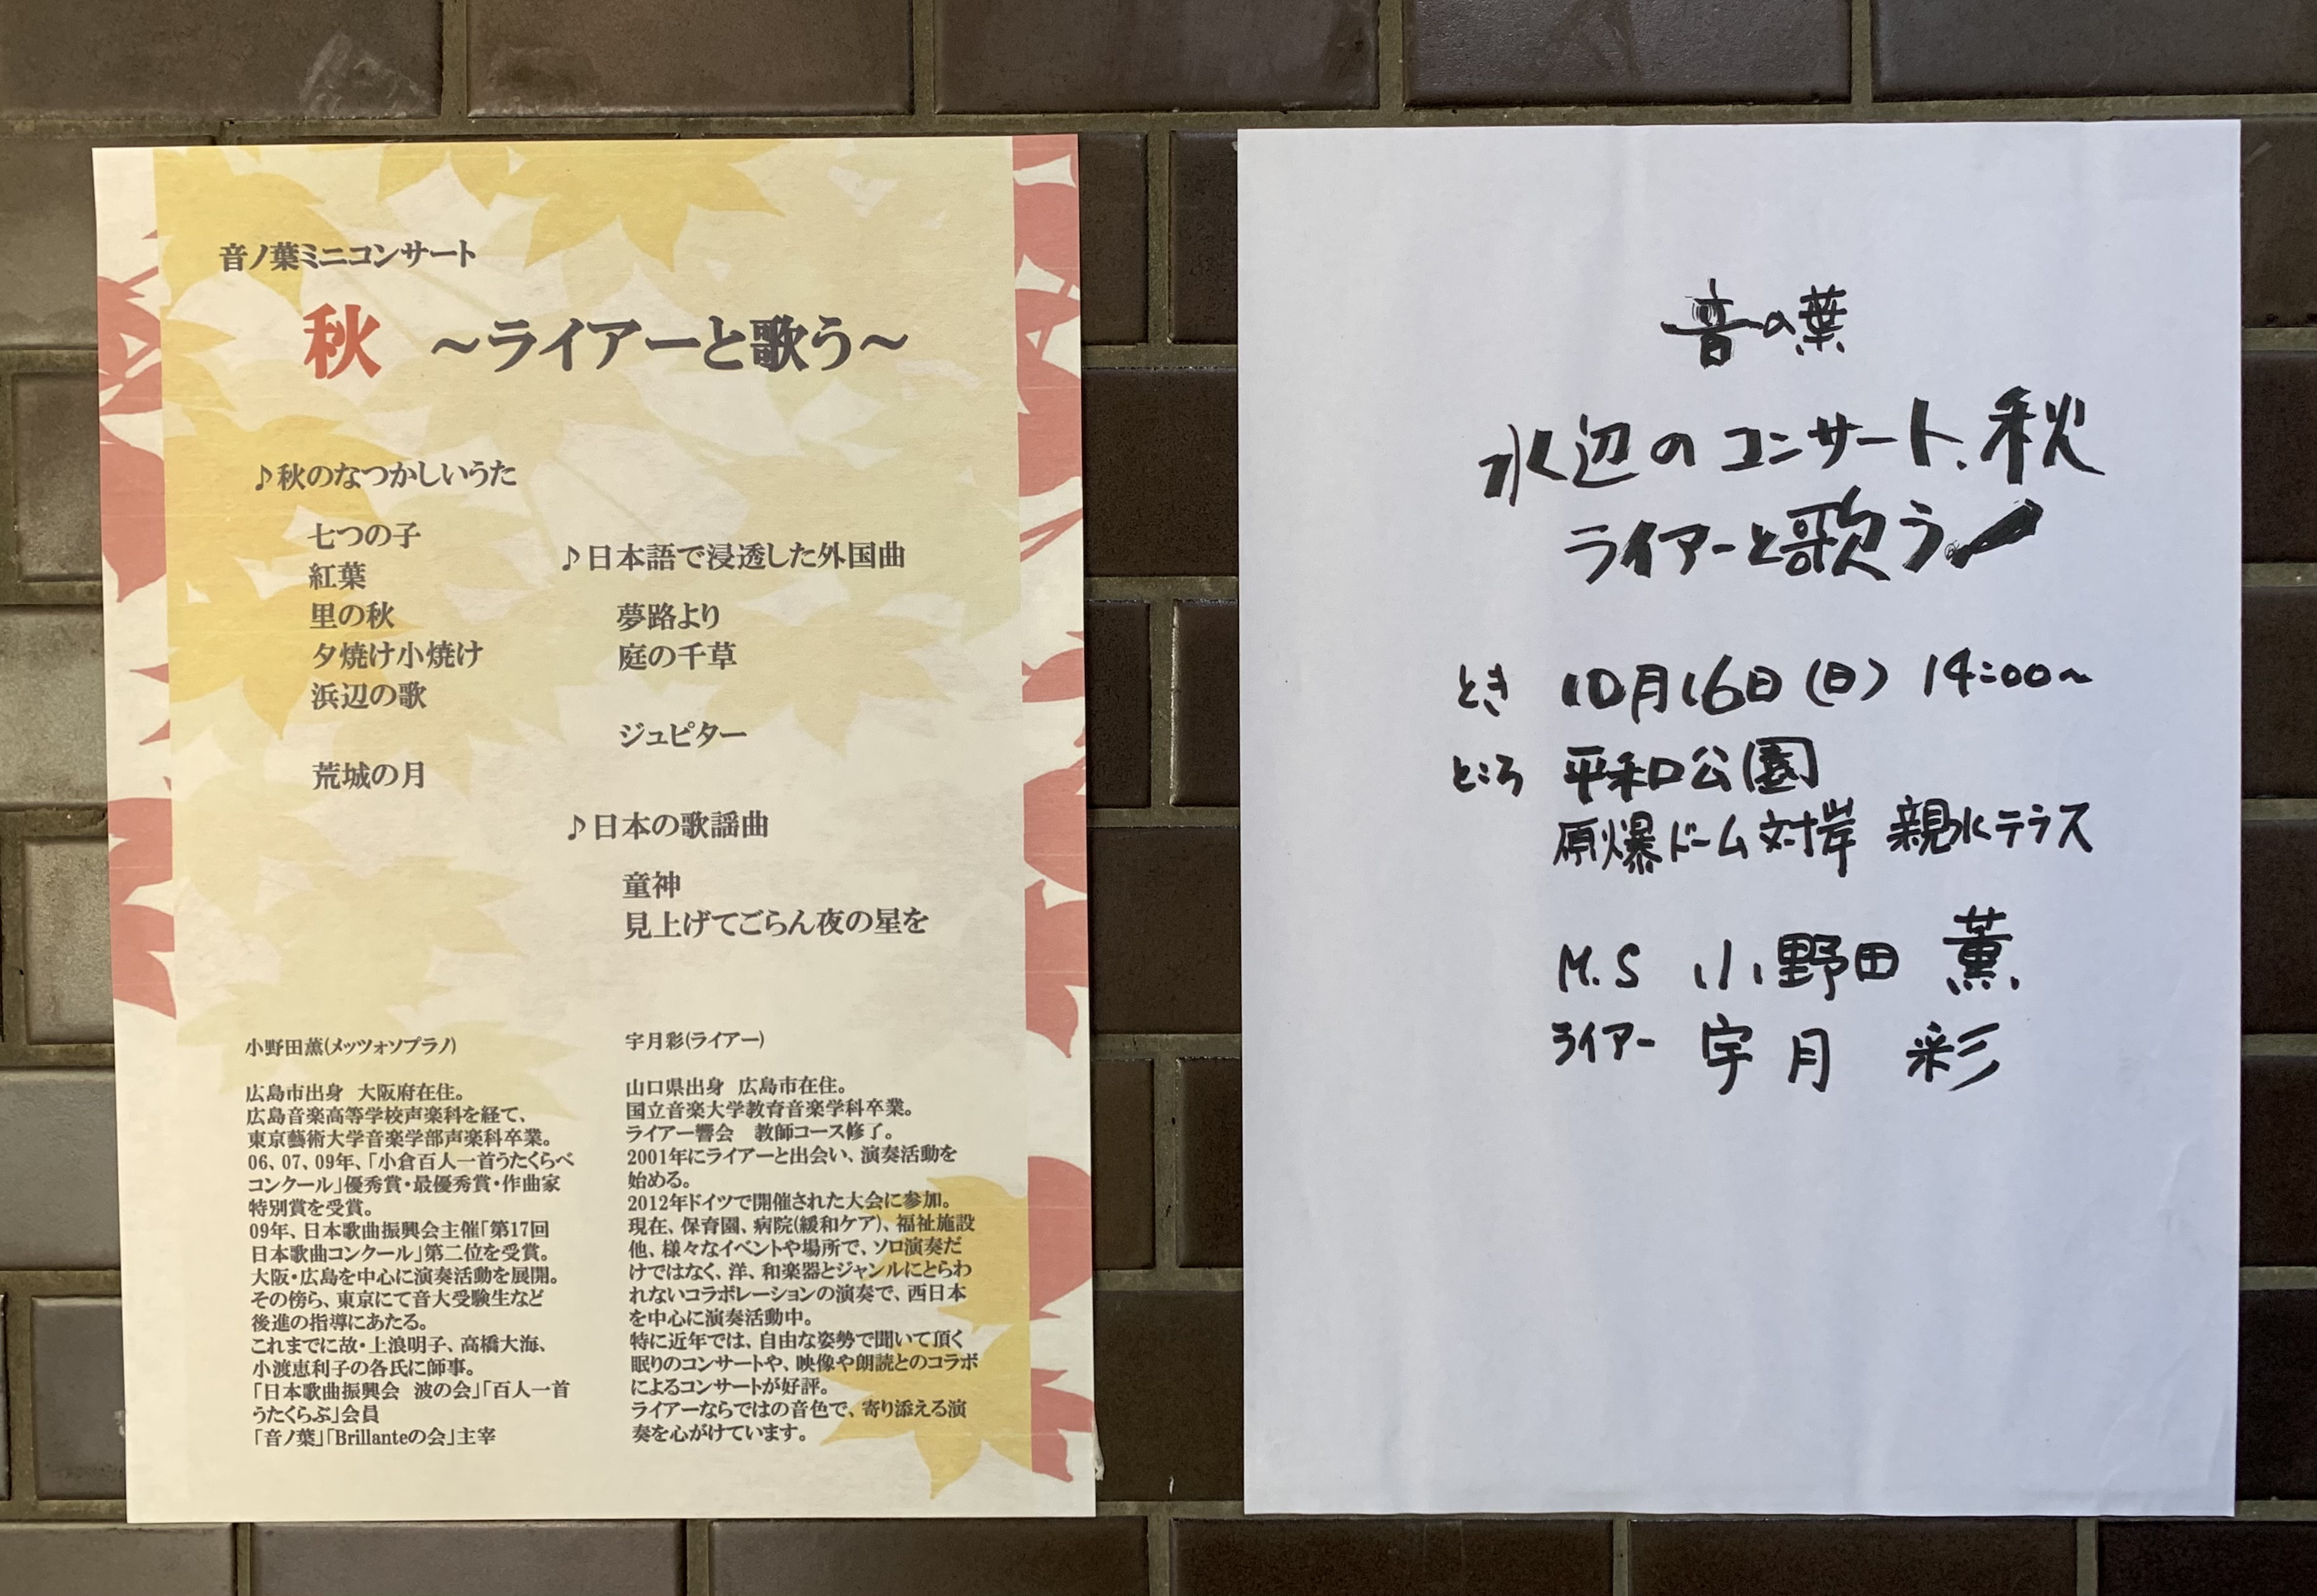 音ノ葉ミニコンサート
秋 ～ライアーと歌う～
♪秋のなつかしいうた
七つの子
紅葉
里の秋
夕焼け小焼け
浜辺の歌
荒城の月
♪日本語で浸透した外国曲
夢路より
庭の千草
ジュピター
♪日本の歌謡曲
童神
見上げてごらん夜の星を
小野田薫(メッツォソプラノ)
広島市出身 大阪府在住。
広島音楽高等学校声楽科を経て、
東京藝術大学音楽学部声楽科卒業。
06、07、09年、「小倉百人一首うたくらべ
コンクール」優秀賞・最優秀賞・作曲家
特別賞を受賞。
09年、日本歌曲振興会主催「第17回
日本歌曲コンクール」第二位を受賞。
大阪・広島を中心に演奏活動を展開。
その傍ら、東京にて音大受験生など
後進の指導にあたる。
これまでに故・上浪明子、高橋大海、
小渡恵利子の各氏に師事。
「日本歌曲振興会 波の会」「百人一首
うたくらぶ」会員
「音ノ葉」「Brillanteの会」主宰
宇月彩(ライアー)
山口県出身 広島市在住。
国立音楽大学教育音楽学科卒業。
ライアー響会 教師コース修了。
2001年にライアーと出会い、演奏活動を
始める。
2012年ドイツで開催された大会に参加。
現在、保育園、病院(緩和ケア)、福祉施設
他、様々なイベントや場所で、ソロ演奏だ
けではなく、洋、和楽器とジャンルにとらわ
れないコラボレーションの演奏で、西日本
を中心に演奏活動中。
特に近年では、自由な姿勢で聞いて頂く
眠りのコンサートや、映像や朗読とのコラボ
によるコンサートが好評。
ライアーならではの音色で、寄り添える演
奏を心がけています。
音の葉
水辺のコンサート.秋
ライアーと歌う
とき 10月16日(日) 14:00～
ところ 平和公園
原爆ドーム対岸 親水テラス
M.S 小野田 薫
ライアー 宇月 彩